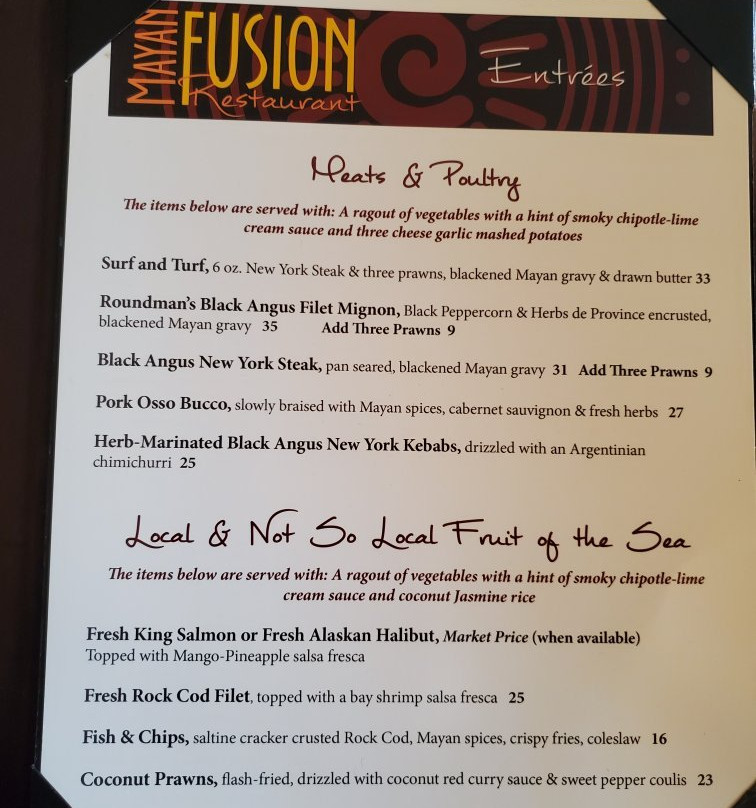 MAYAN FUSION
Restaurant
Entrées
Meats & Poultry
The items below are served with: A ragout of vegetables with a hint of smoky chipotle-lime
cream sauce and three cheese garlic mashed potatoes
Surf and Turf, 6 oz. New York Steak & three prawns, blackened Mayan gravy & drawn butter 33
Roundman's Black Angus Filet Mignon, Black Peppercorn & Herbs de Province encrusted,
blackened Mayan gravy 35 Add Three Prawns 9
Black Angus New York Steak, pan seared, blackened Mayan gravy 31 Add Three Prawns 9
Pork Osso Bucco, slowly braised with Mayan spices, cabernet sauvignon & fresh herbs 27
Herb-Marinated Black Angus New York Kebabs, drizzled with an Argentinian
chimichurri 25
Local & Not So Local Fruit of the Sea
The items below are served with: A ragout of vegetables with a hint of smoky chipotle-lime
cream sauce and coconut Jasmine rice
Fresh King Salmon or Fresh Alaskan Halibut, Market Price (when available)
Topped with Mango-Pineapple salsa fresca
Fresh Rock Cod Filet, topped with a bay shrimp salsa fresca 25
Fish & Chips, saltine cracker crusted Rock Cod, Mayan spices, crispy fries, coleslaw 16
Coconut Prawns, flash-fried, drizzled with coconut red curry sauce & sweet pepper coulis 23